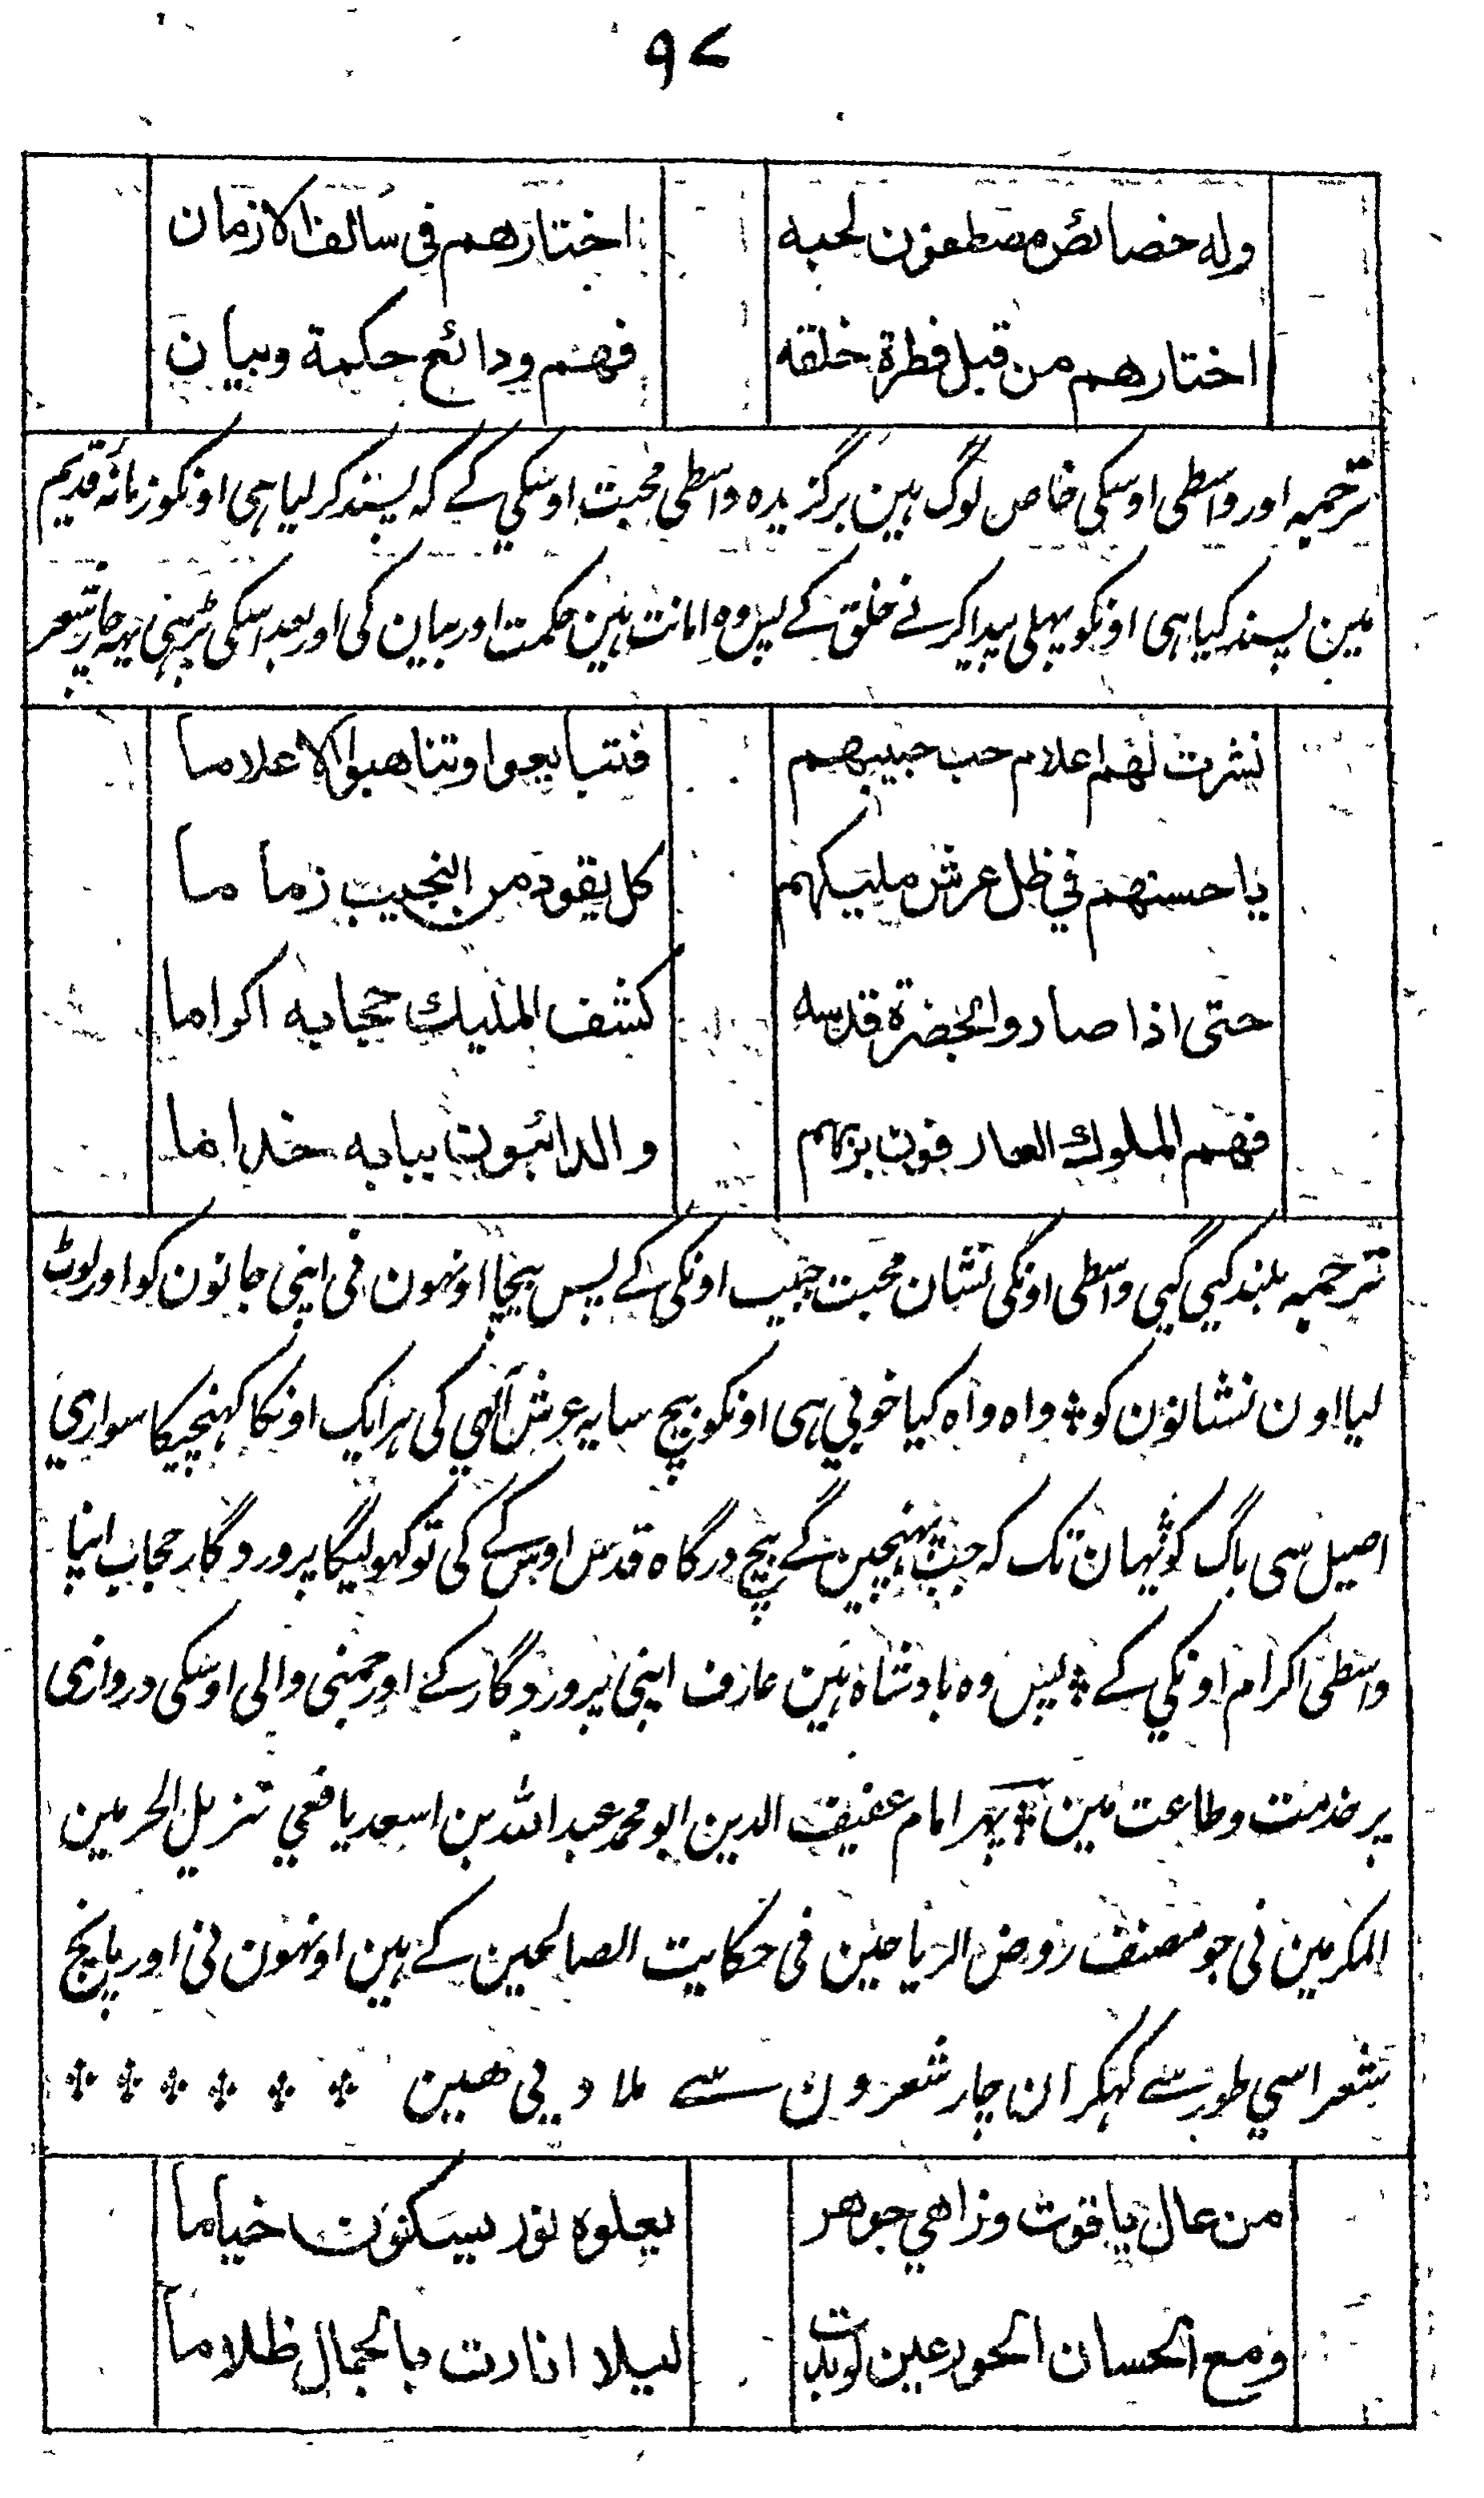 ۹۷
وله خصائص مصطفون لحبه اختارهم فى سالف الازمان
اختارهم من قبل فطرة خلقه فهم ودائع حكمة وبيان
ترجمہ اور واسطی اوسکی خاص لوگ ہین برگزیدہ واسطی محبت اوسکي کے کہ پسند کر لیا ہی اونکو زمانۂ قدیم
مین پسند کیا ہی اونکو پہلی پیدا کرنے خلق کے پس وہ امانت ہین حکمت اور بیان کی اور بعد اسکی پڑہی یہہ چار شعر
نشرت لهم اعلام حب حبيبهم فتبايعوا وتناهبوا الاعلاما
يا حسنهم في ظل عرش مليكهم كل يقود من النجيب زماما
حتى اذا صاروا لحضرة قدسه كشف المليك حجابه اكراما
فهم الملوك العارفون بربهم والدائبون ببابه خداما
ترجمہ بلند کیی گیی واسطی اونکی نشان محبت حبیب اونکی کے پس بیچا اونہون فی اپنی جانون کو اور لوٹ
لیا اون نشانون کو ÷ واہ واہ کیا خوبي ہی اونکو بیچ سایہ عرش الٰہي کی ہر ایک اونکا کہنچیکا سواري
اصیل سی باگ کو ÷ یہان تک کہ جب پہنچین گے بیچ درگاہ قدس اوس کے کی تو کہولیگا پروردگار حجاب اپنا
واسطی اکرام اونکي کے ÷ پس وہ بادشاہ ہین عارف اپنی پروردگار کے اور جمنی والی اوسکی دروازی
پر خدمت و طاعت مین ÷ پہر امام عفیف الدین ابو محمد عبد اللہ بن اسعد یافعي تنزیل الحرمین
المکرمین نی جو مصنف روض الریاحین فی حکایت الصالحین کے ہین اونہون نی اور پانچ
شعر اسي طور سے کہکر ان چار شعرون سے ملا دیی ہین ÷ ÷ ÷ ÷ ÷ ÷
من عال ياقوت وزاهي جوهر يعلوه نور يسكنون خياما
ومع الحسان الحور عين لو بدت ليلا انارت بالجمال ظلاما